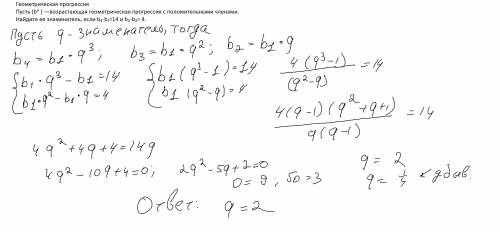 Геометрическая прогрессия
Пусть (bⁿ ) —возрастающая геометрическая прогрессия с положительными членами.
Найдите ее знаменатель, если b₄-b₁=14 и b₃-b₂= 4.
Пусть q - знаменатель, тогда
b₄ = b₁ · q³ ; b₃ = b₁ · q² ; b₂ = b₁ · q
{ b₁ · q³ - b₁ = 14
{ b₁ · q² - b₁ · q = 4
{ b₁ (q³ - 1) = 14
{ b₁ (q² - q) = 4
4 (q³ - 1) / (q² - q) = 14
4 (q - 1) (q² + q + 1) / q (q - 1) = 14
4q² + 4q + 4 = 14q
4q² - 10q + 4 = 0; 2q² - 5q + 2 = 0
D = 9 ; √D = 3
q = 2
убыв.
Ответ: q = 2